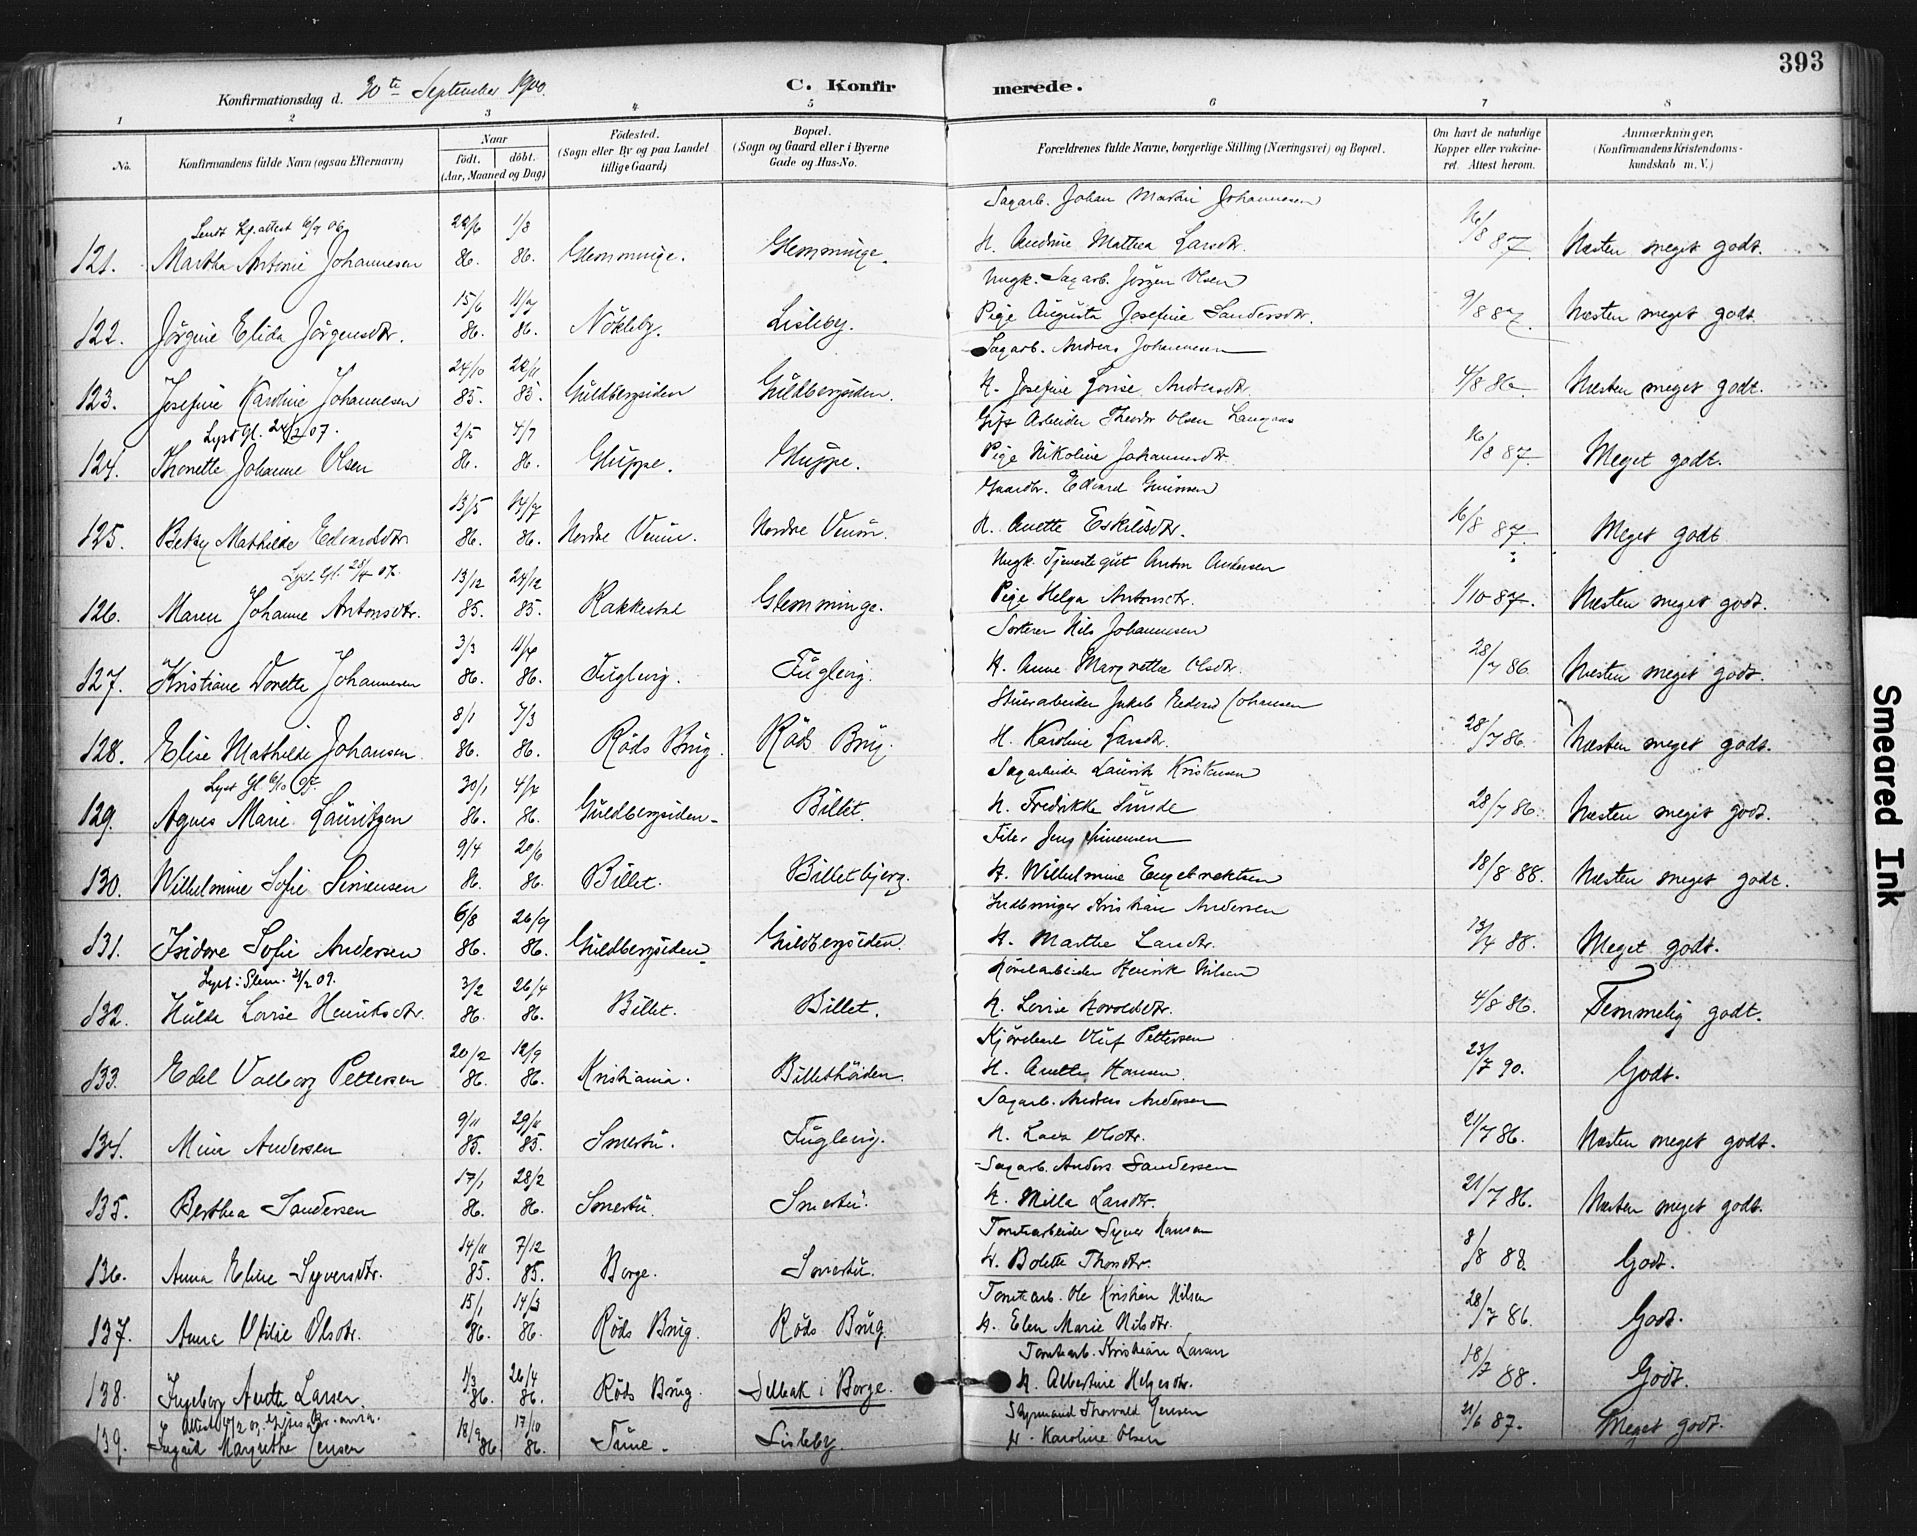 393
Konfirmationsdag d. 30te September 1900. C. Konfirmerede.
1 2 3 4 5 6 7 8
No. Konfirmandens fulde Navn (ogsaa Efternavn) Naar født. døbt. (Aar, Maaned og Dag) Fødested. (Sogn eller By og paa Landet tillige Gaard) Bopæl. (Sogn og Gaard eller i Byerne Gade og Hus-No. Forældrenes fulde Navne, borgerlige Stilling (Næringsvei) og Bopæl. Om havt de naturlige Kopper eller vakcineret. Attest herom. Anmærkninger, (Konfirmandens Kristendomskundskab m. V.)
Sagarb. Johan Martin Johannesen
121. Martha Antonie Johannesen 86. 1/8 86. Glemminge. Glemminge. H. Andrine Mathea Larsdtr. 16/8 87. Næsten meget godt.
Ungk. Sagarb. Jørgen Olsen
122. Jørgine Elida Jørgensdtr. 15/6 86. 86. Nökleby. Lisleby. Pige Augusta Josefine Sandersdtr. 9/8 87. Næsten meget godt.
Sagarb. Andreas Johannesen
123. Josefine Karoline Johannesen 24/10 85. 85. Guldbergsiden Guldbergsiden. H. Josefine Lovise Andersdtr. 4/8 86 Næsten meget godt.
Lyst Gl. 07.
Gift Arbeider Theodor Olsen
124. Thonette Johanne Olsen 2/5 86. 4/7 86. Gluppe. Gluppe. Pige Nikoline Johannesdtr. 16/8 87. Meget godt.
Gaardbr. Edvard
125. Betsy Mathilde Edvardsdtr 13/5 86. 86. Nordre Nordre H. Anette Eskildsdtr. 16/8 87. Meget godt
Lyst Gl. 07.
Ungk. Tjenestegut Anton Andersen
126. Maren Johanne Antonsdtr. 13/12 85. 85. Rakkestad Glemminge. Pige Helga Antonsdtr. 1/10 87. Næsten meget godt.
Sorterer Nils Johannesen
127. Kristiane Dorette Johannesen 3/3 86. 86. Fuglevig. Fuglevig. H. Anne Margrethe Olsdtr. 28/7 86. Næsten meget godt.
Jakob Johansen
128. Elise Mathilde Johansen 8/1 86. 7/3 86. Röds Brug. Röds Brug. H. Karoline Larsdtr. 28/7 86. Næsten meget godt.
Lyst Gl 6/10 07.
Sagarbeider Lauritz Kristensen
129. Agnes Marie Lauritzen 30/1 86. 86. Guldbergsiden Billet. H. Fredrikke Sunde 28/7 86. Næsten meget godt.
Filer Jens Simensen
130. Wilhelmine Sofie Simensen 9/4 86. 20/6 86. Billet. Billetbjerg. H. Wilhelmine Engebrektsen 18/8 88. Næsten meget godt.
Kristian Andersen
131. Isidore Sofie Andersen 6/8 86. 26/9 86. Guldbergsiden Guldbergsiden. H. Marthe Larsdtr. 88. Meget godt.
Henrik Nilsen
132. Hulda Lovise Henriksdtr. 3/2 86. 26/4 86. Billet. Billet. H. Lovise 4/8 86. Temmelig godt.
Oluf Pettersen
133. Edel Valborg Pettersen 20/2 86. 12/9 86. Kristiania. H. Anette Hansen. 23/7 90. Godt.
Sagarb. Andreas Andersen
134. Mina Andersen 9/11 85. 29/11 85. Smertu. Fuglevig. H. Lava Olsdtr. 21/7 86. Næsten meget godt.
Sagarb. Anders Sandersen
135. Berthea Sandersen 17/1 86. 28/2 86. Smertu. Smertu. H. Milla Larsdtr. 21/7 86. Næsten meget godt.
Tomtearbeider Syver Hansen
136. Anna Eline Syversdtr. 14/11 85. 7/12 85. Borge. Smertu. H. Bolette Thorsdtr. 8/8 88. Godt.
Tomtearb. Ole Kristian Nilsen
137. Anna Otilie Olsdtr. 15/1 86. 14/3 86. Röds Brug. Röds Brug. H. Elen Marie Nilsdtr. 28/7 86. Godt.
Tomtearb. Kristian Larsen
138. Ingeborg Anette Larsen. 1/3 86. 26/4 86. Röds Brug. Selbak i Borge. H. Albertine Helgesdtr. 18/7 88. Godt.
Thorvald Jensen
139. Ingrid Margrethe Jensen 18/9 86 17/10 86. Tune. Lisleby. H. Karoline Olsen 87. Meget godt.
Smeared Ink